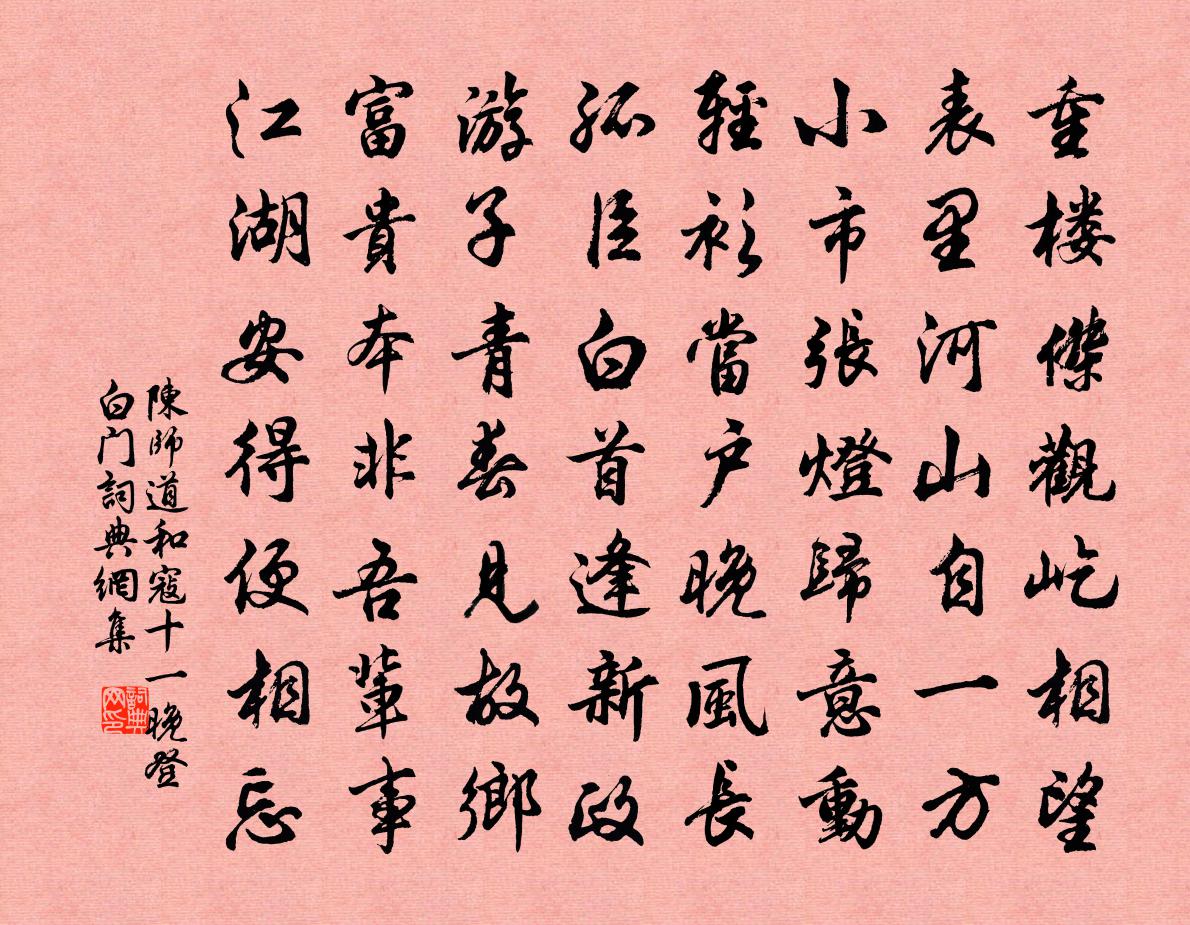 重楼傑觀屹相望
表里河山自一方
小市張燈歸意動
輕衫當户晚風長
孤臣白首逢新政
游子青春見故鄉
富貴本非吾輩事
江湖安得便相忘
陳師道和寇十一晚登
白门詞典網集
詞典网印